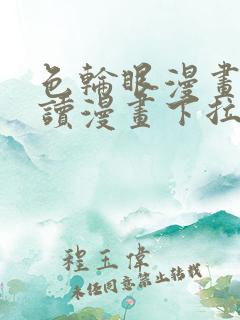 色輪眼漫畫
讀漫畫下拉
程玉偉
未經同意禁止轉載